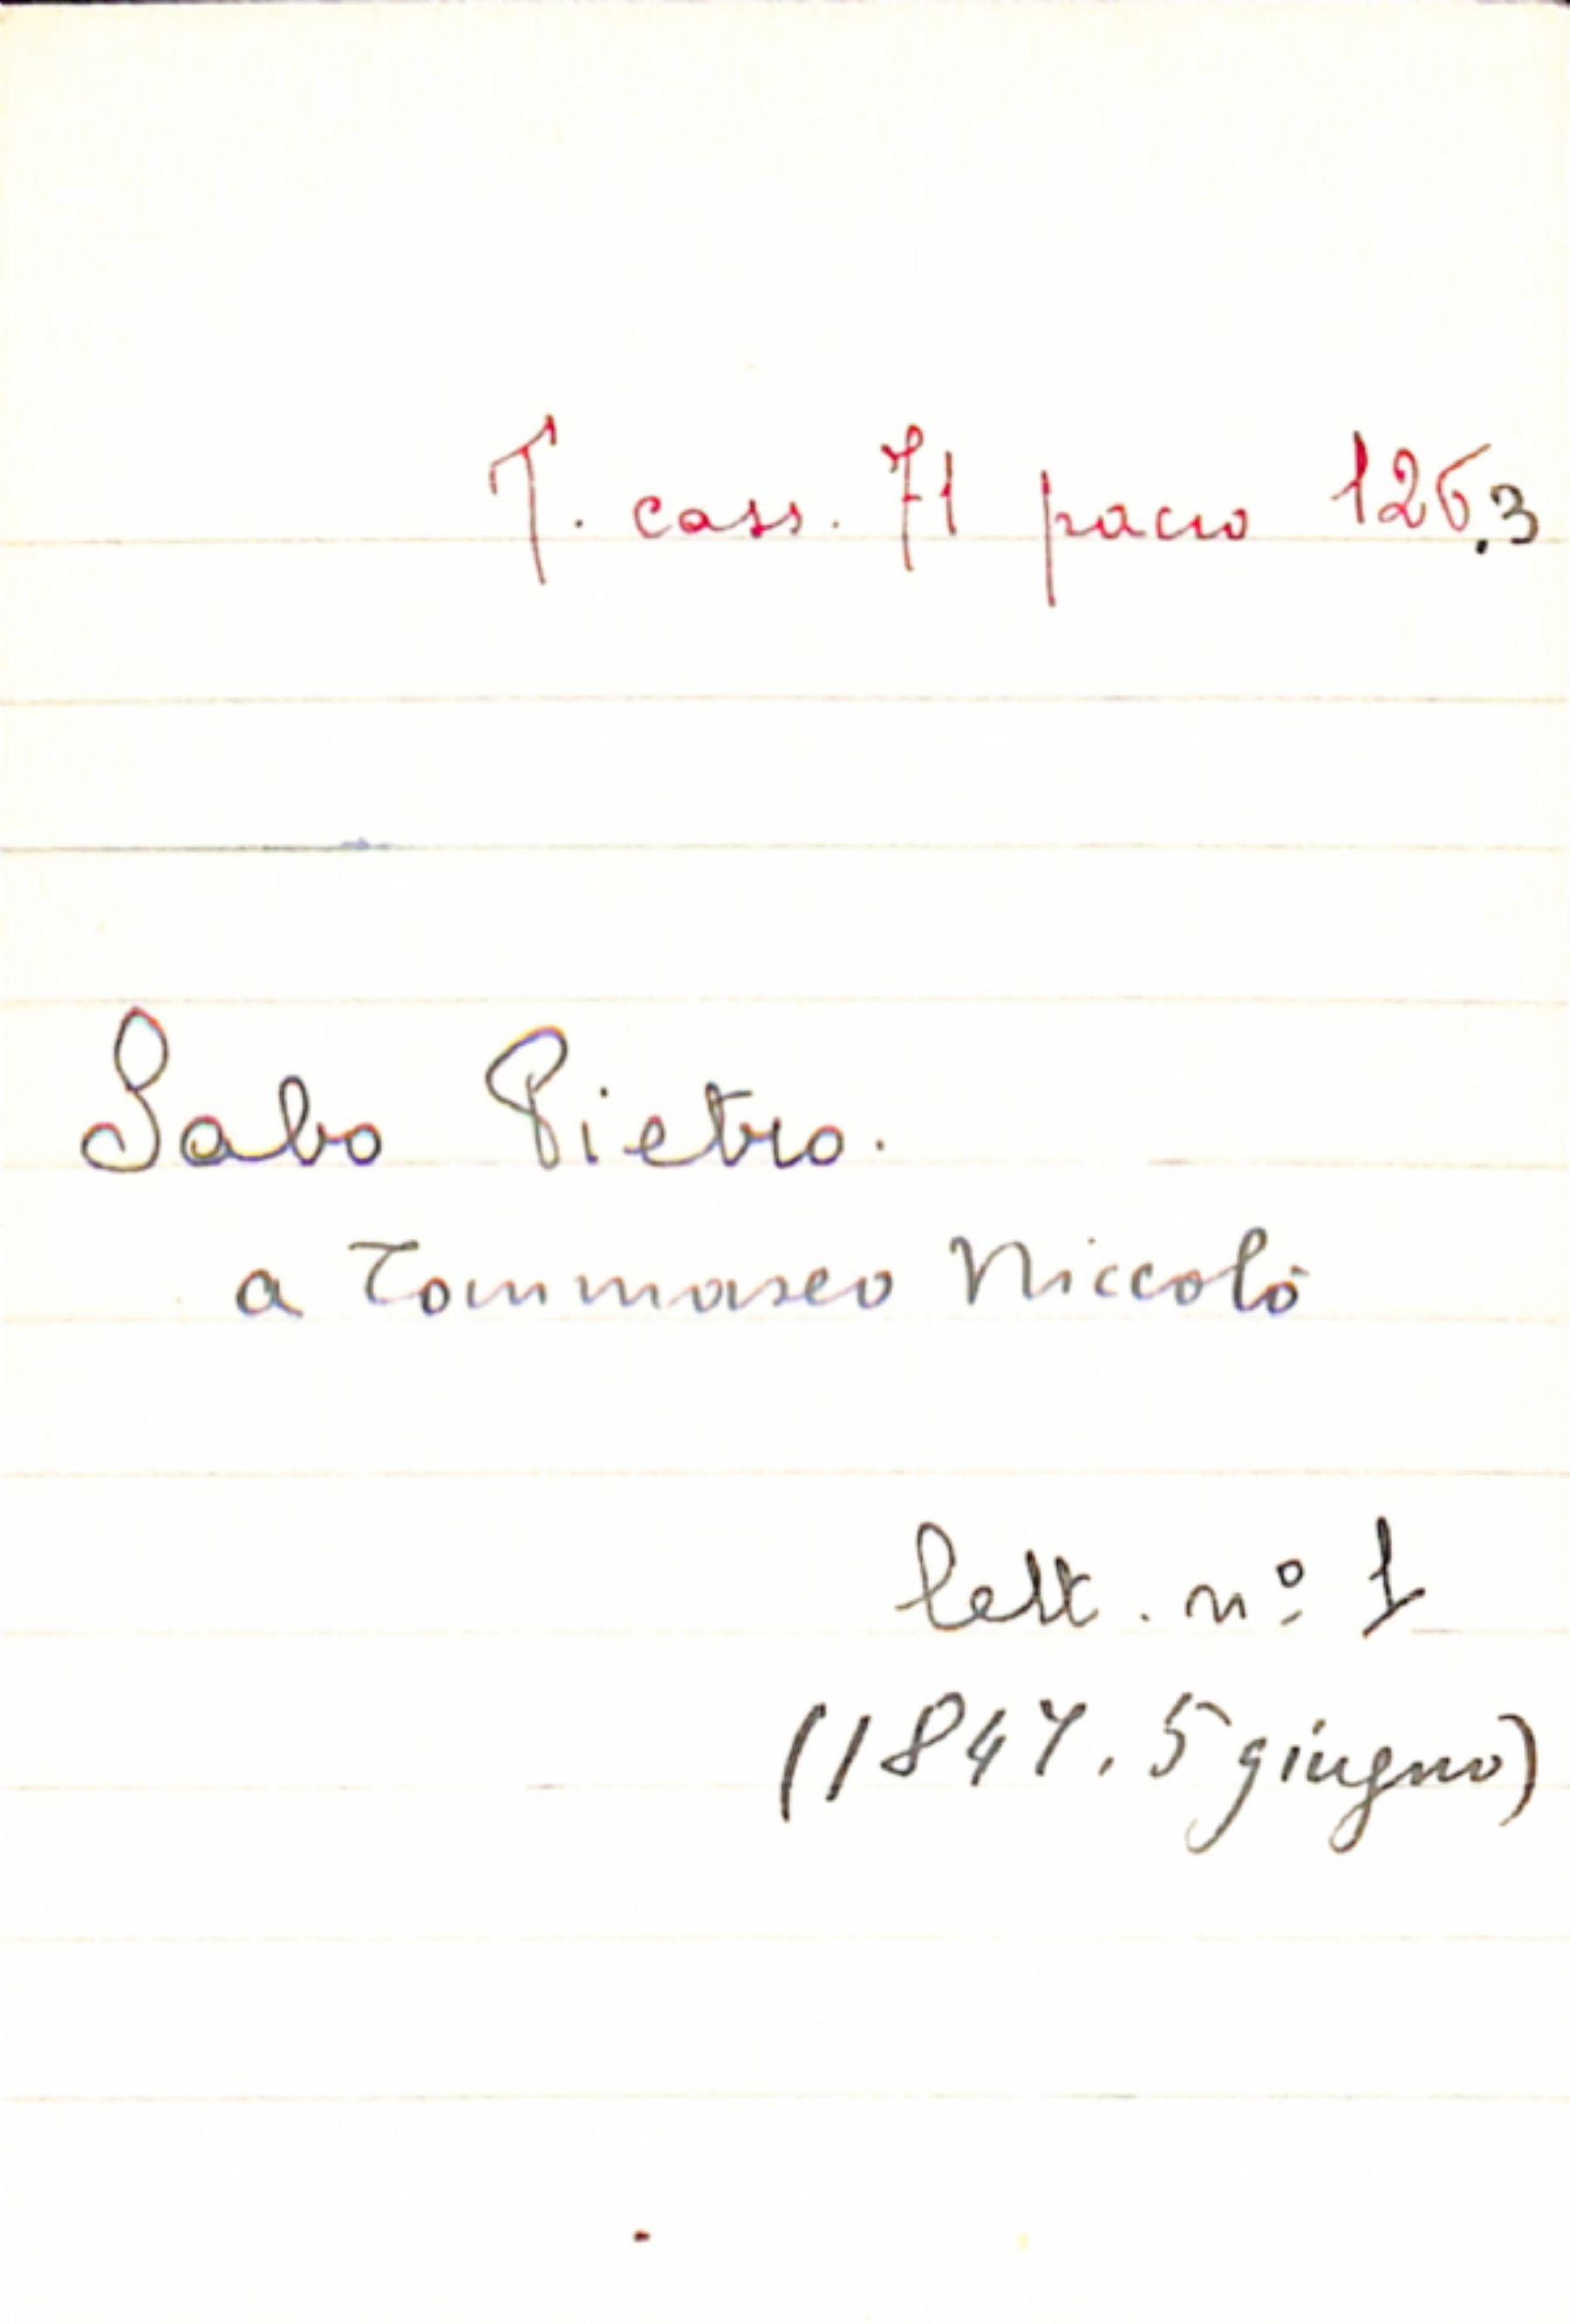 T. cass. 71 pacco 126.3
Sabo Pietro.
a Tommaseo Niccolò
lett. nº 1
(1847. 5 giugno)